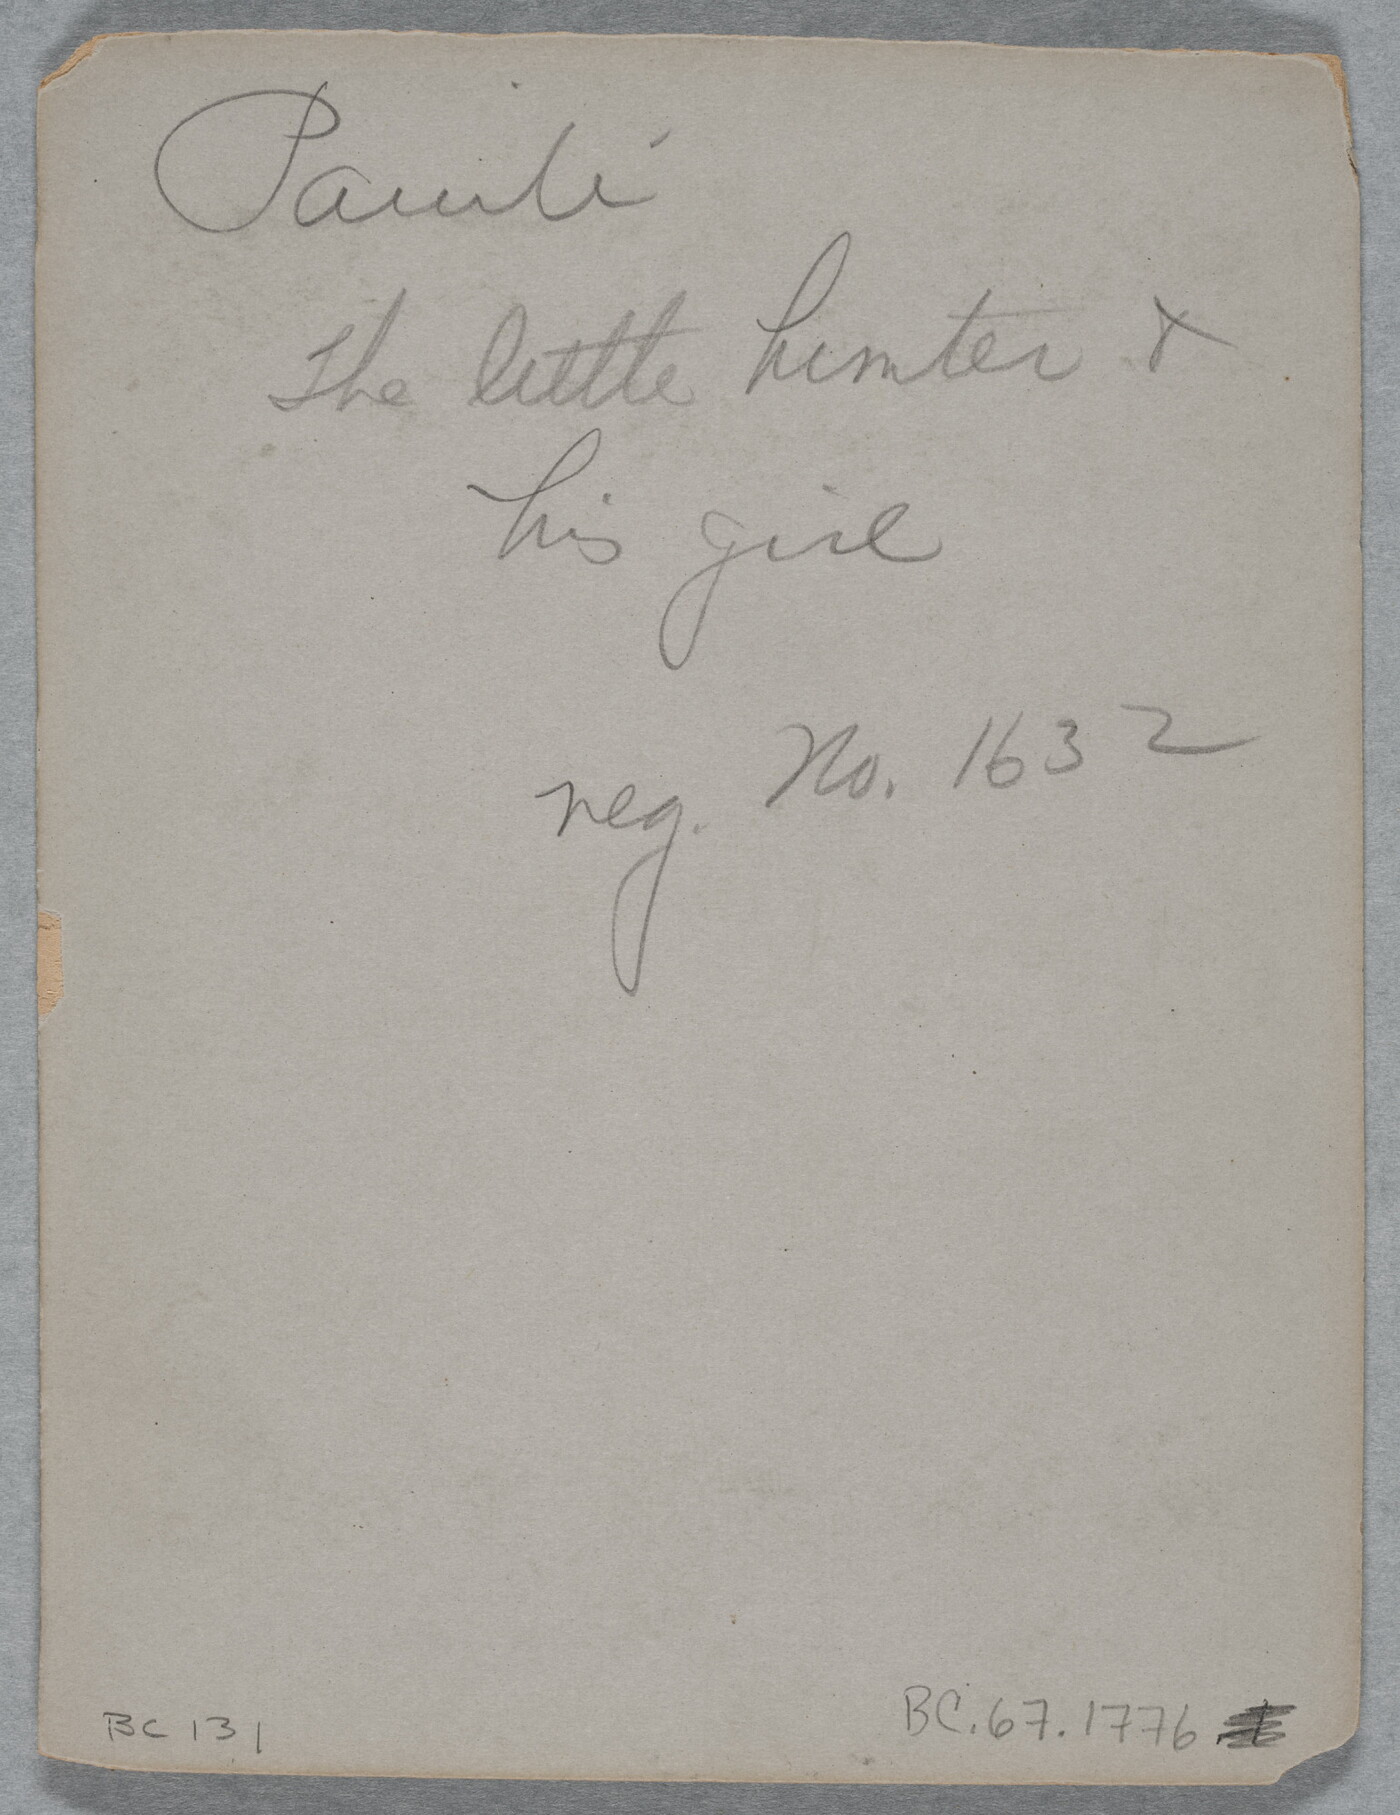 Paiuti
The little hunter &
his girl
neg. No. 1632
BC 131
BC.67.1776